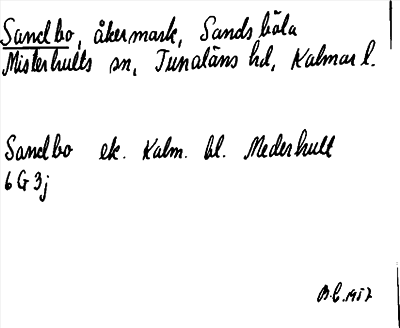 Sandbo, åkermark, Sandsböla
Misterhults sn, Tunaläns hd, Kalmar l.
Sandbo ek. Kalm. bl. Mederhult
6G3j
B.L. 1957